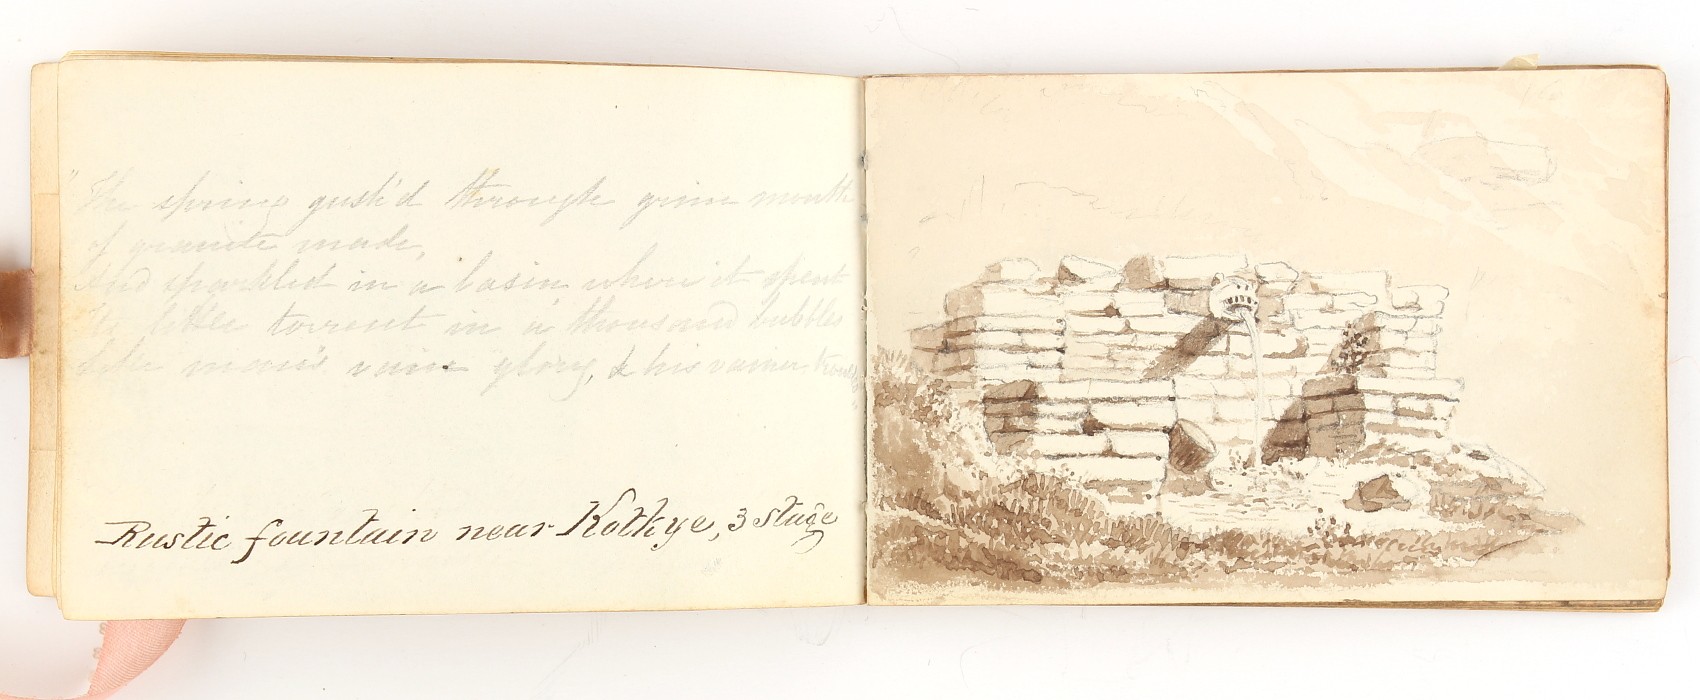 "The spring gush'd through grim mouths
of granite made,
And sparkled in a basin where it spent
Its little torrent in a thousand bubbles
Like man's vain glory, & his vainer troubles"
Rustic fountain near Kotkye, 3 stage